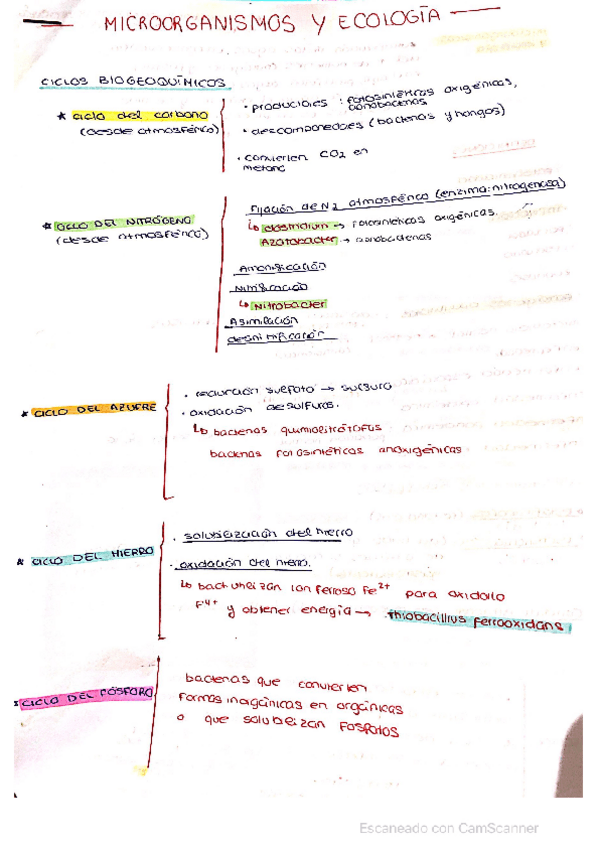 MICROORGANISMOS Y ECOLOGÍA
CICLOS BIOGEOQUÍMICOS
★ ciclo del carbono
(desde atmosférico)
• productores : fotosintéticos oxigénicas,
cianobacterias
• descomponedores (bacterias y hongos)
• convierten CO2 en
metano
★ CICLO DEL NITRÓGENO
(desde atmosférico)
Fijación de N2 atmosférico (enzima: nitrogenasa)
↳ clostridium → fotosintéticas oxigénicas.
Azotobacter → cianobacterias
Amonificación
Nitrificación
↳ Nitrobacter
Asimilación
desnitrificación
★ CICLO DEL AZUFRE
• reducción sulfato → sulfuro
• oxidación de sulfuros.
↳ bacterias quimiolitrótofas
bacterias fotosintéticas anoxigénicas
★ CICLO DEL HIERRO
• solubilización del hierro
• oxidación del hierro.
↳ ion ferroso Fe2+ para oxidarlo
F4+ y obtener energía → thiobacillius ferrooxidans
★ CICLO DEL FÓSFORO
bacterias que convierten
formas inorgánicas en orgánicas
o que solubilizan FOSFATOS
Escaneado con CamScanner